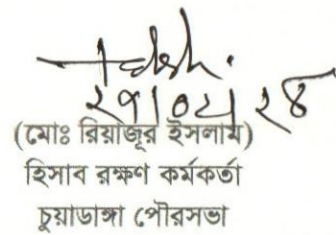 (মোঃ রিয়াজুর ইসলাম)
হিসাব রক্ষণ কর্মকর্তা
চুয়াডাঙ্গা পৌরসভা